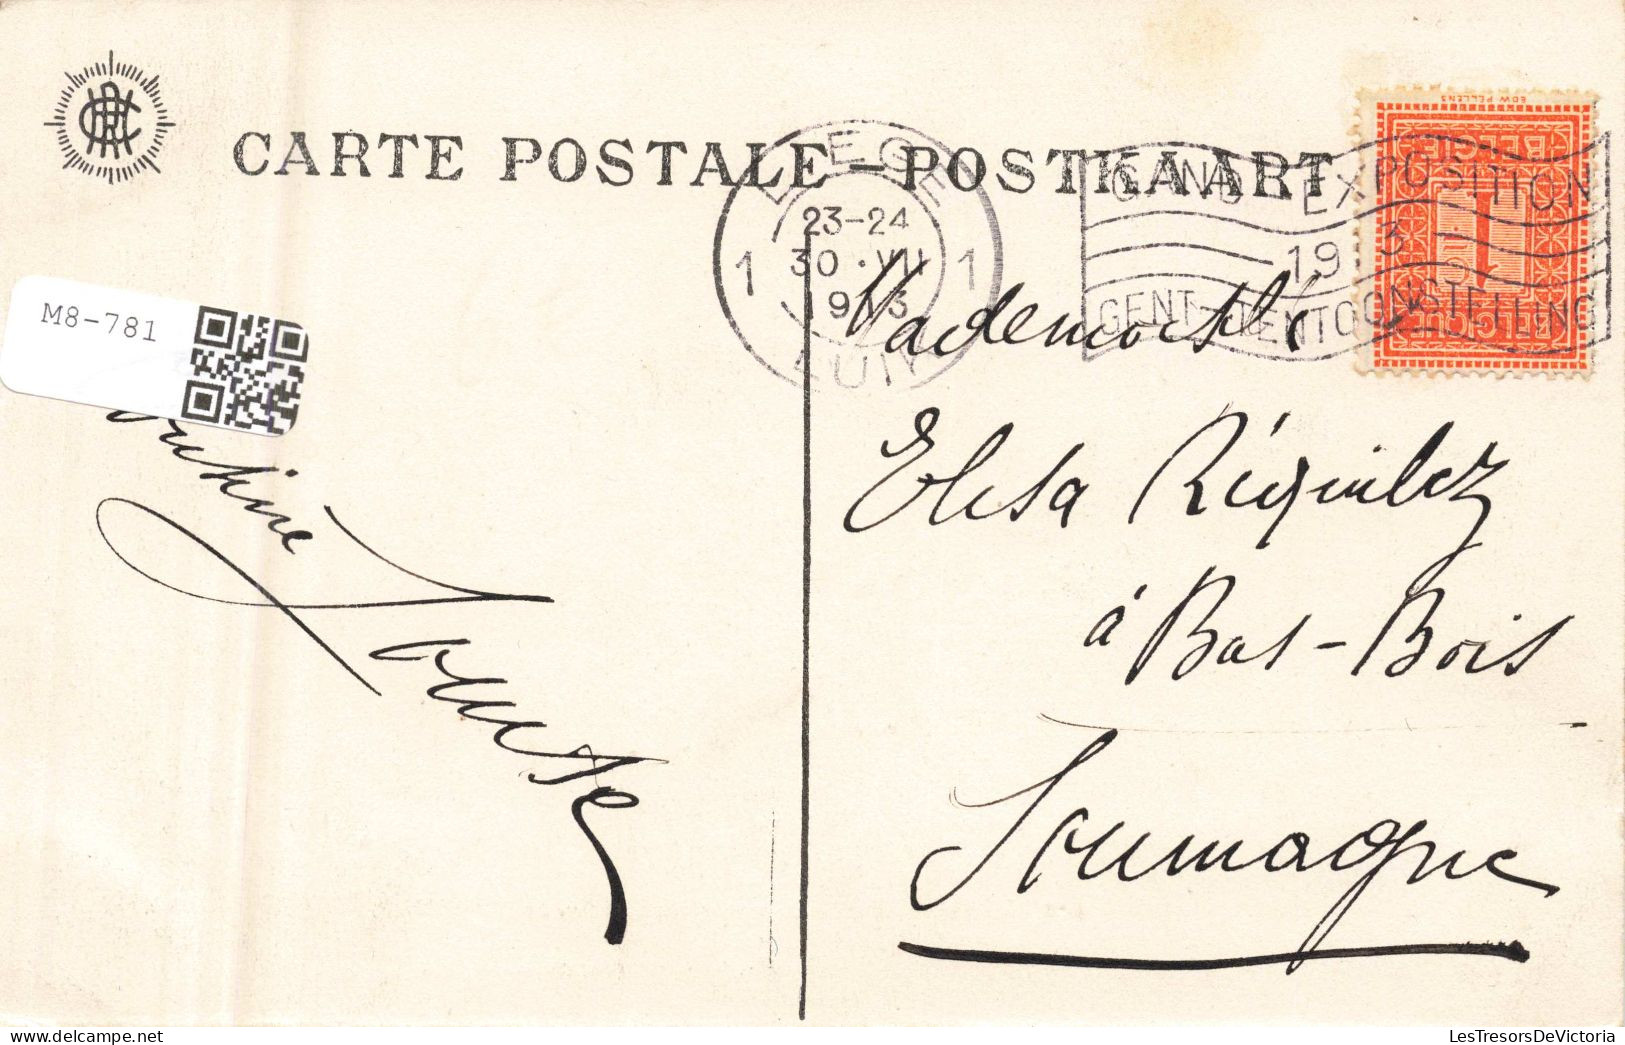 CARTE POSTALE – POSTKAART
LIEGE
23-24
1 30·VII 1
1913
LUIK
GAND EXPOSITION
1913
GENT-TENTOONSTELLING
EDW PELLENS
BELGIE
1
BELGIQUE
M8-781
Mademoiselle
Elisa
à Bas-Bois
Soumagne
LesTresorsDeVictoria